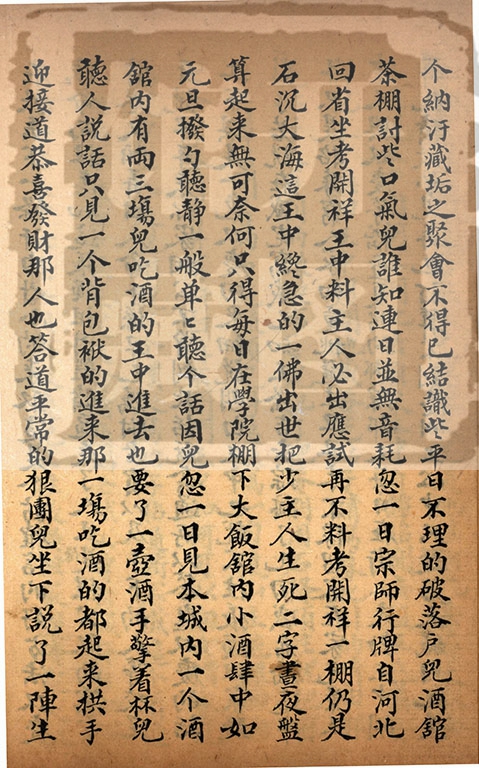 个納汙藏垢之聚會不得已結識些平日不理的破落户兒酒舘
茶棚討些口氣兒誰知連日並無音耗忽一日宗師行牌自河北
回省坐考開祥王中料主人必出應試再不料考開祥一棚仍是
石沉大海這王中終急的一佛出世把少主人生死二字晝夜盤
算起来無可奈何只得每日在學院棚下大飯舘内小酒肆中如
元旦撥勺聽静一般单〻聽个話因兒忽一日見本城内一个酒
舘内有両三塲兒吃酒的王中進去也要了一壺酒手擎着杯兒
聽人説話只見一个背包袱的進来那一塲吃酒的都起来拱手
迎接道恭喜發財那人也答道平常的狠團兒坐下説了一陣生